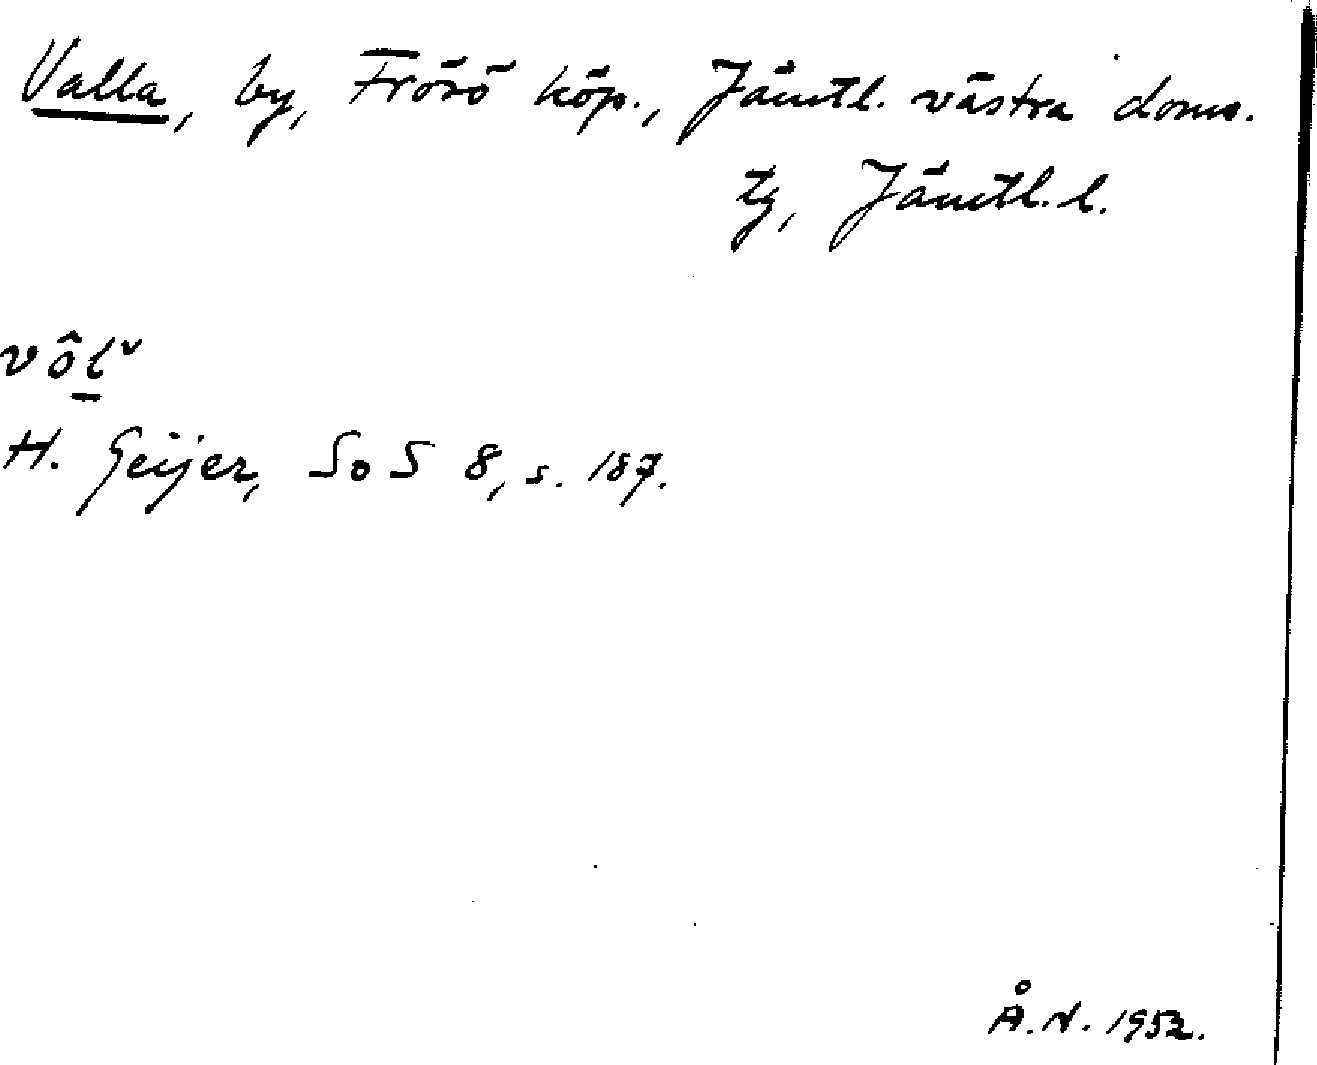 Valla, by, Frösö köp., Jämtl. västra doms.
tg, Jämtl. l.
vôl̠ˇ
H. Geijer, SoS 8, s. 187.
Å.N. 1952.